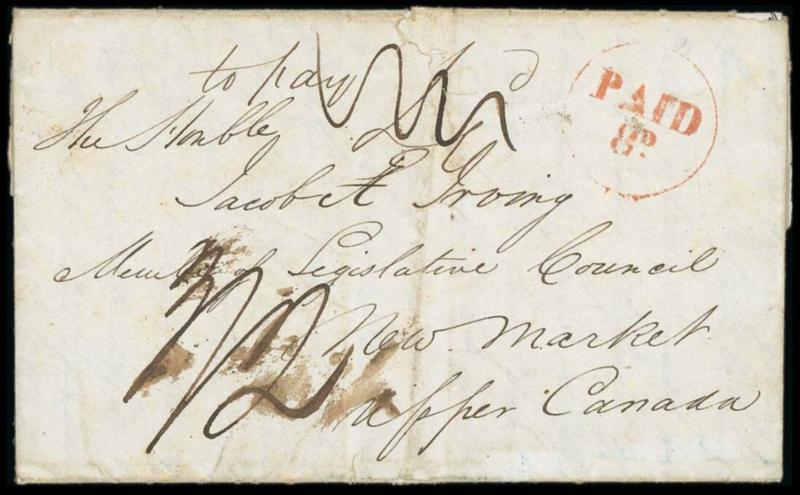 to pay
PAID
8D
The Honble
Jacob Æ Irving
Member of Legislative Council
1/2
New Market
Upper Canada